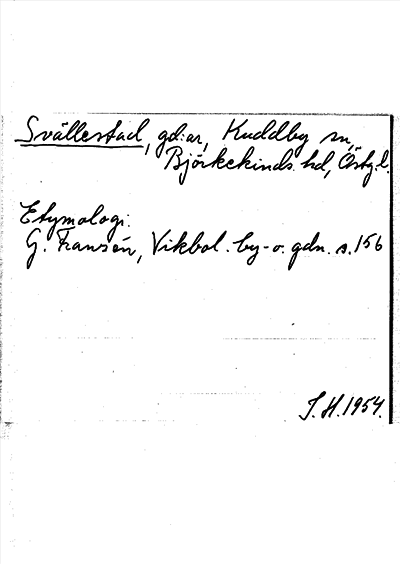 Svällestad, gd:ar, Kuddby sn,
Björkekinds hd, Östg.l.
Etymologi:
G. Fransén, Vikbol. by- o. gdn. s. 156
I. H. 1954.